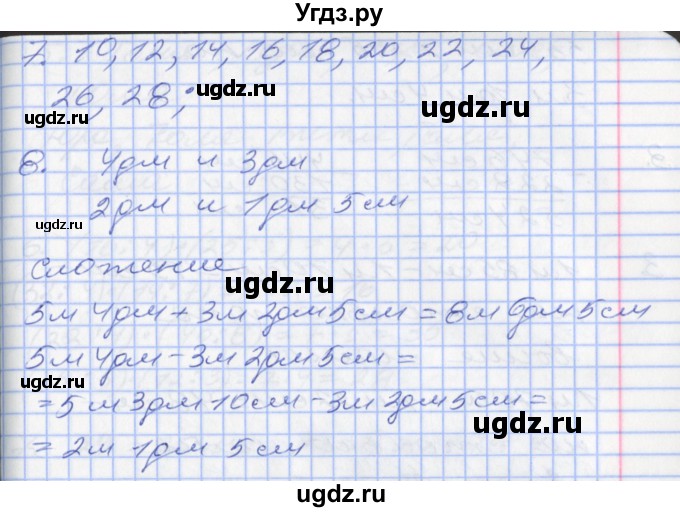 Угдз.ру
7. 10, 12, 14, 16, 18, 20, 22, 24,
ugdz.ru
26, 28;
ugdz.ru
ugdz.ru
8. 4дм и 3дм
ugdz.ru
2дм и 1дм 5см
ugdz.ru
сложение
ugdz.ru
5м 4дм + 3м 2дм 5см = 8м 6дм 5см
5м 4дм - 3м 2дм 5см =
ugdz.ru
ugdz.ru
= 5м 3дм 10см - 3м 2дм 5см =
ugdz.ru
= 2м 1дм 5см
ugdz.ru
ugdz.ru